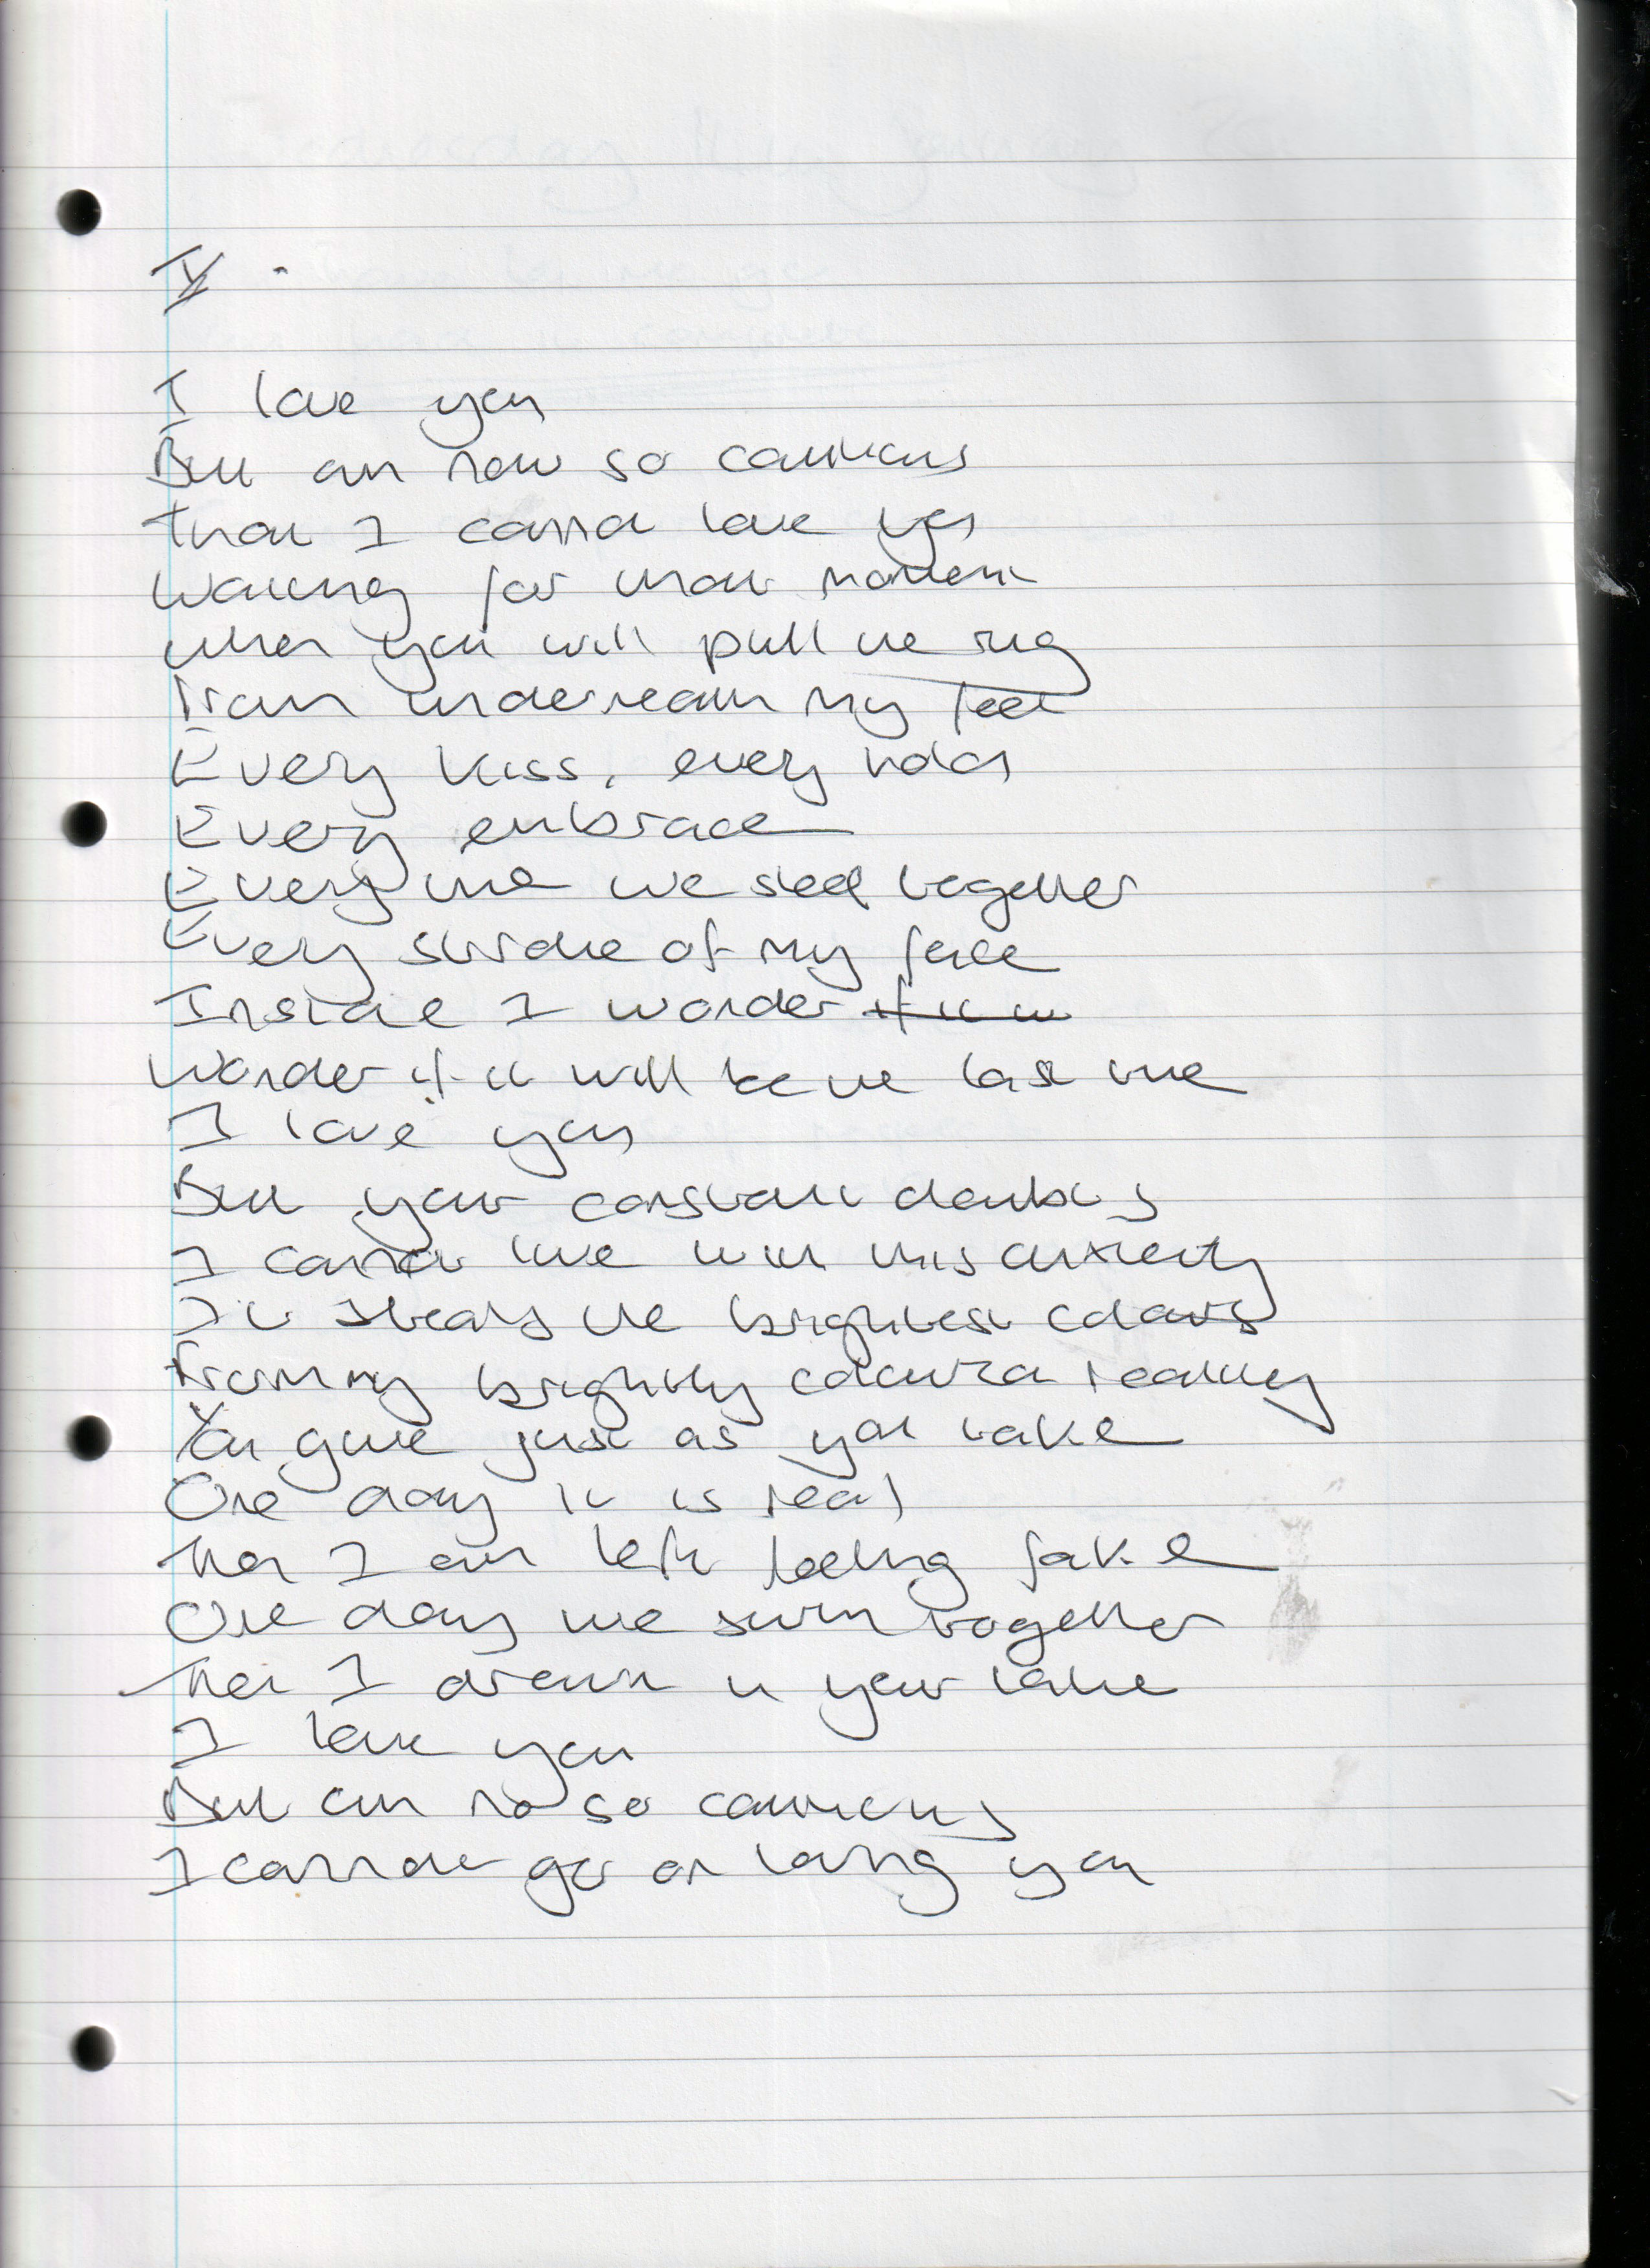 IV.
I love you
But am now so cautious
That I cannot love you
Waiting for that moment
When you will pull the rug
From underneath my feet
Every kiss, every
Every embrace
Every time we sleep together
Every stroke of my face
Inside I wonder if it w
Wonder if it will be the last time
I love you
But your constant doubts
I cannot live with this anxiety
It steals the brightest colours
From my brightly coloured reality
You give just as you take
One day it is real
Then I am left feeling fake
One day we swim together
Then I drown in your lake
I love you
But am now so cautious
I cannot go on loving you